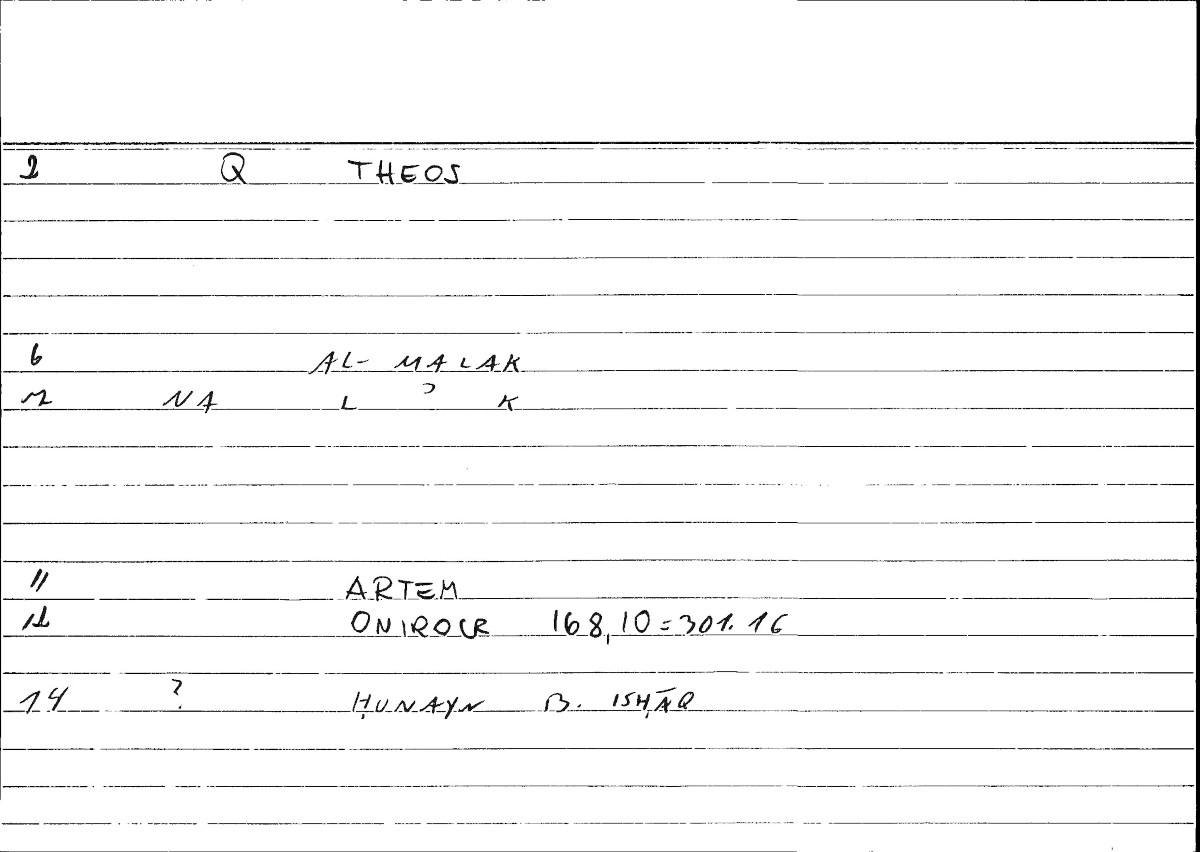 2 Q THEOS
6 AL- MALAK
NA L ʾ K
11 ARTEM
ONIROCR 168,10=301.16
14 ? ḤUNAYN B. ISḤĀQ